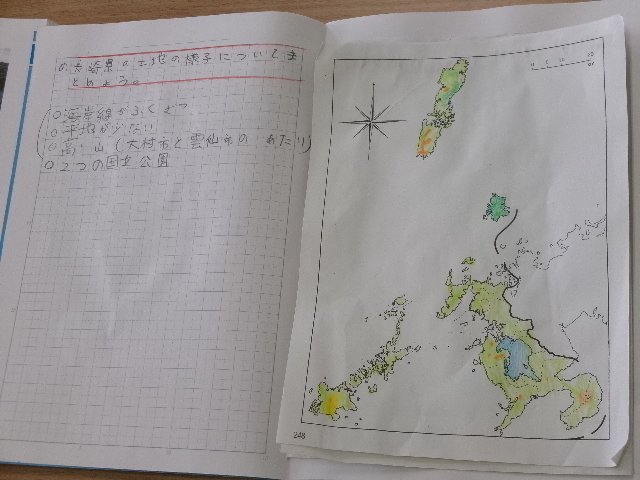 の長崎県の土地の様子についてま
とめよう。
○海岸線がふくざつ
○平地が少ない
○高い山(大村市と雲仙市の あたり)
○2つの国立公園
248